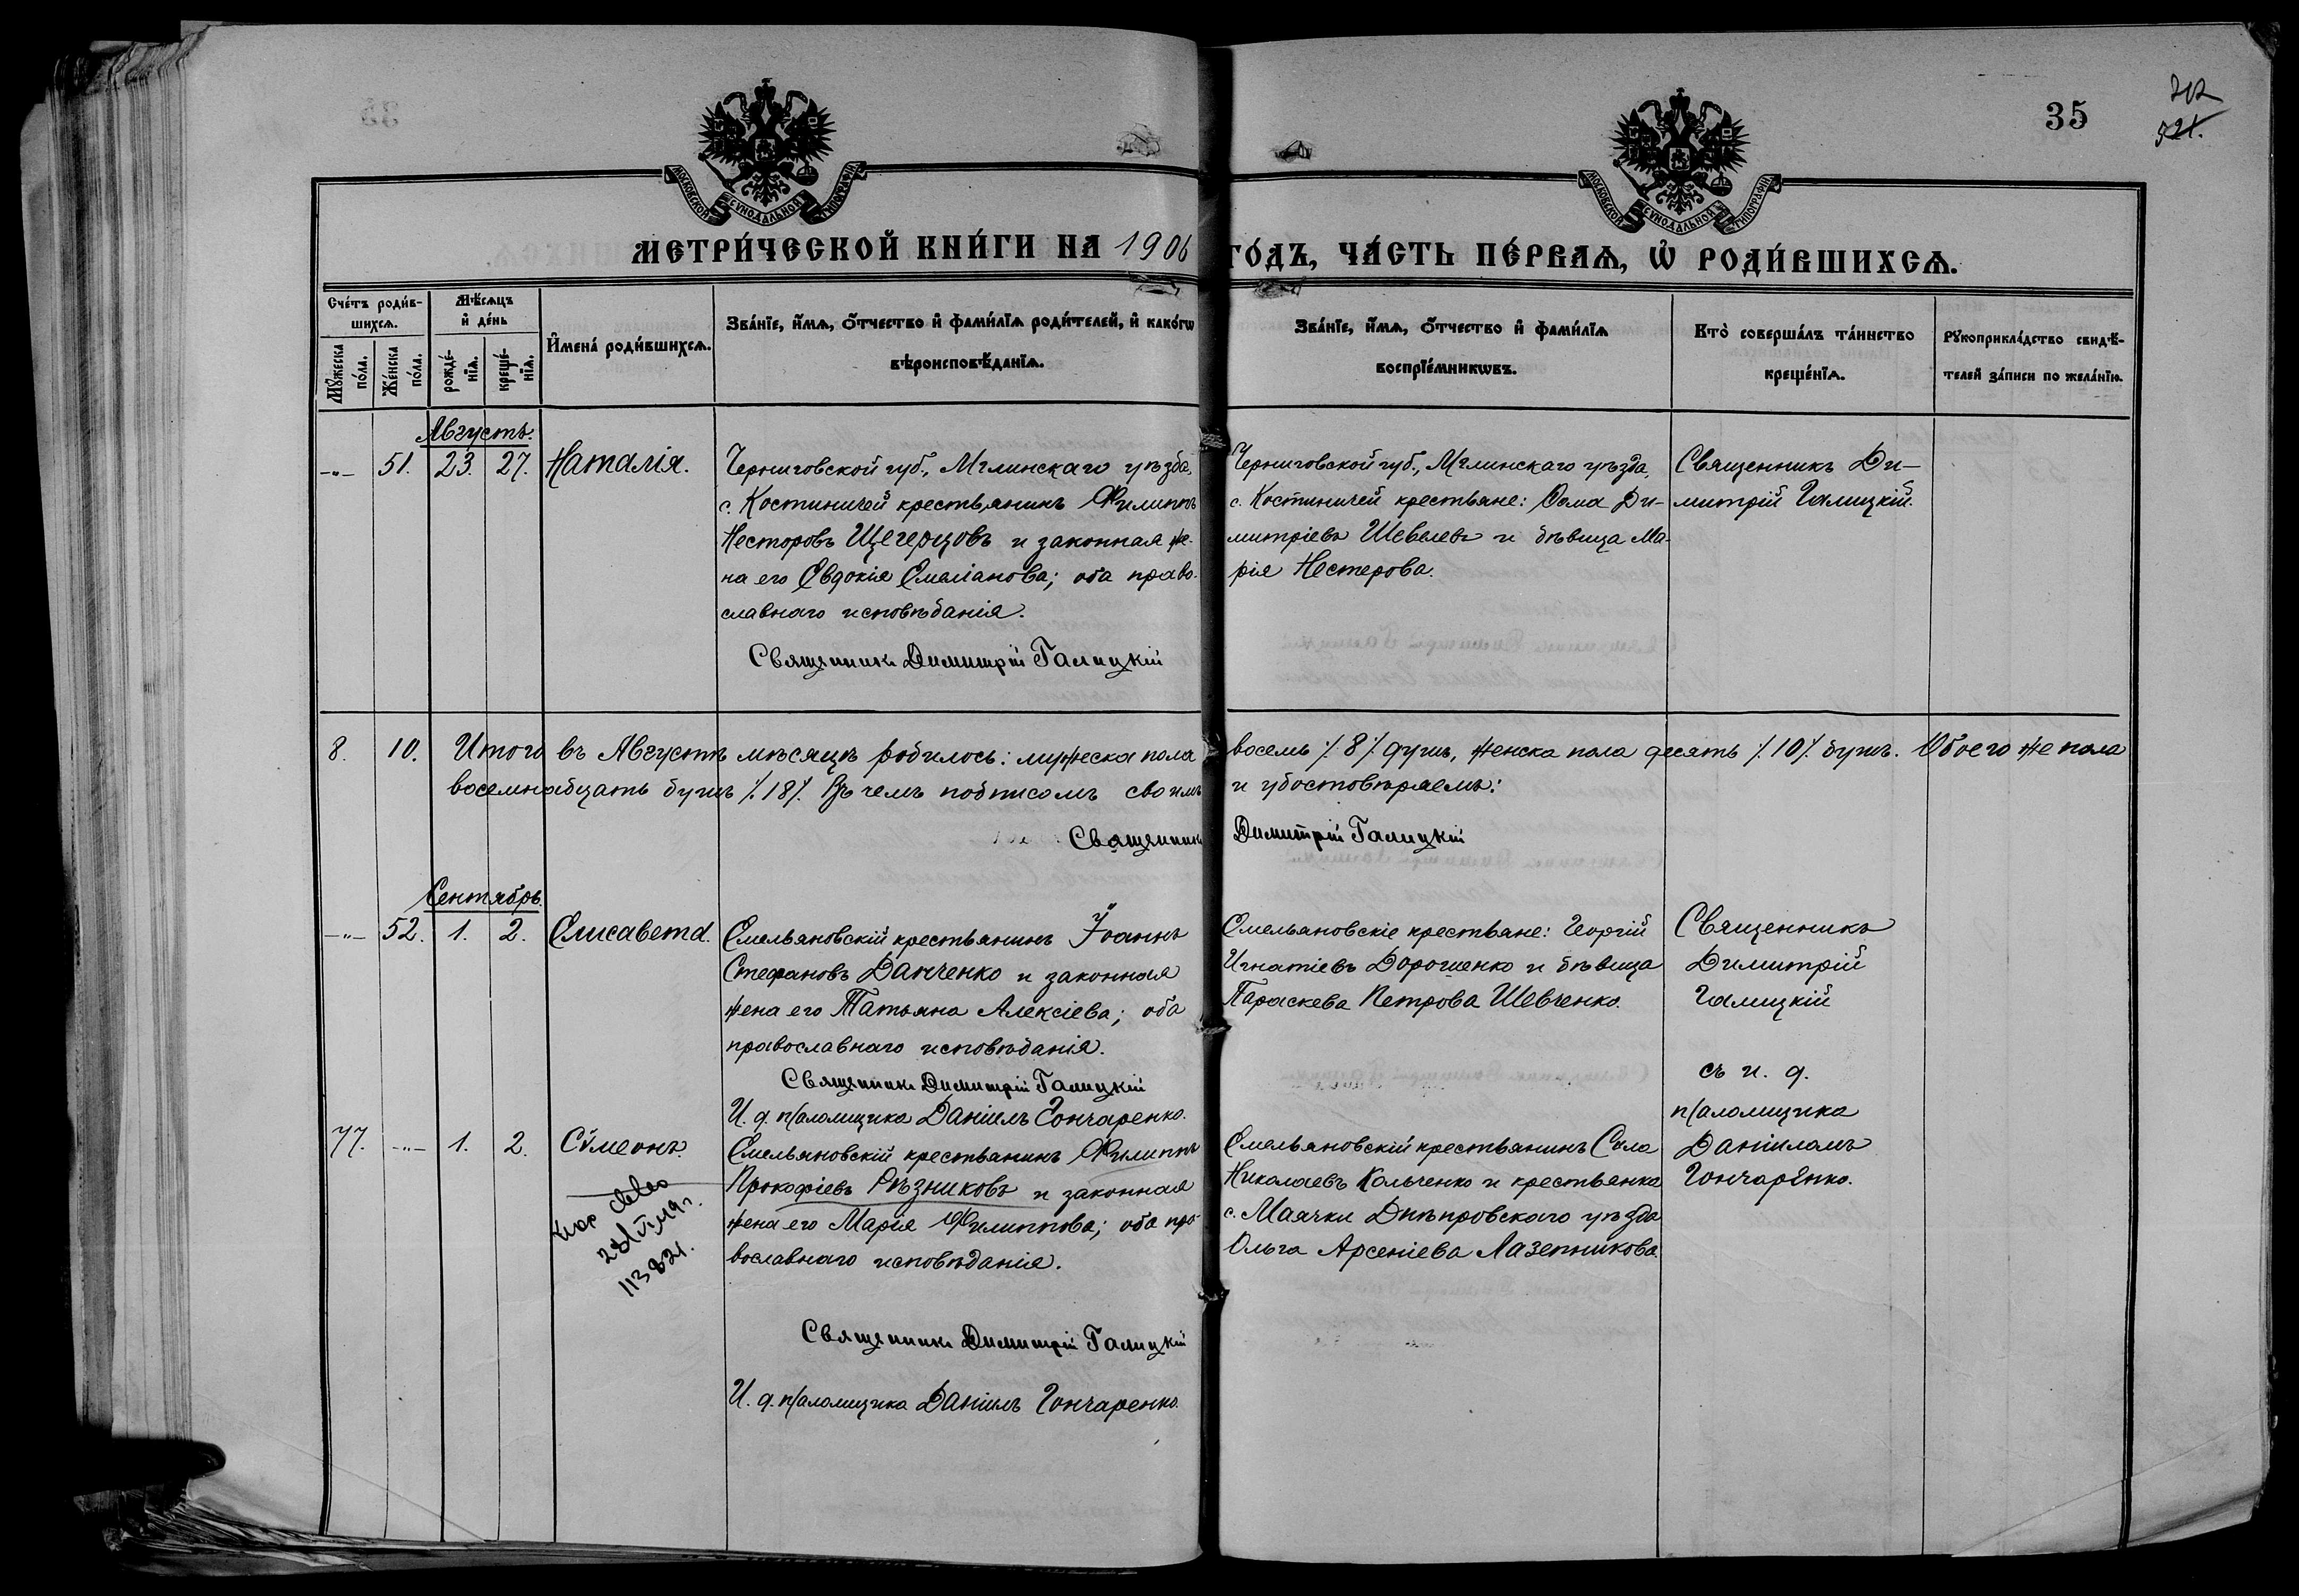 35
212
521.
МОСКОВСКОЙ СѴНОДАЛЬНОЙ ТИПОГРАФІИ
МОСКОВСКОЙ СѴНОДАЛЬНОЙ ТИПОГРАФІИ
МЕТРИ́ЧЕСКОЙ КНИ́ГИ НА 1906 ГО́ДЪ, ЧА́СТЬ ПЕ́РВАѦ, Ѡ РОДИ́ВШИХСѦ.
Сче́тъ роди́в-
шихсѧ.
Мꙋ́жеска по́ла.
Же́нска по́ла.
Мѣ́сѧцъ
и де́нь
рожде́-
нїѧ.
креще́-
нїѧ.
Имена̀ роди́вшихсѧ.
Зва́нїе, и́мѧ, о́тчество и фами́лїѧ роди́телей, и како́гѡ
вѣроисповѣ́данїѧ.
Зва́нїе, и́мѧ, о́тчество и фами́лїѧ
воспрїе́мникѡвъ.
Кто̀ соверша́лъ та́инство
креще́нїѧ.
Рꙋкоприкла́дство свидѣ́-
телей за́писи по жела́нїю.
Августъ.
-"- 51. 23. 27. Наталія.
Черниговской губ., Мглинскаго уѣзда,
с. Костиничей крестьянинъ Филиппъ
Несторовъ Щегерцовъ и законная же-
на его Евдокія Емеліанова; оба право-
славнаго исповѣданія.
Священникъ Димитрій Галицкій
Черниговской губ., Мглинскаго уѣзда,
с. Костиничей крестьяне: Ѳома Ди-
митріевъ Шевелевъ и дѣвица Ма-
рія Нестерова.
Священникъ Ди-
митрій Галицкій.
8. 10. Итого въ Августѣ мѣсяцѣ родилось: мужеска пола восемь /. 8 /. душъ, женска пола десять /. 10 /. душъ. Обоего же пола
восемнадцать душъ /. 18 /. Въ чемъ подписомъ своимъ и удостовѣряемъ:
Священникъ Димитрій Галицкій
Сентябрь.
-"- 52. 1. 2. Елисавета.
Емельяновскій крестьянинъ Іоаннъ
Стефановъ Данченко и законная
жена его Татьяна Алексіева; оба
православнаго исповѣданія.
Священникъ Димитрій Галицкій
И. д. псаломщика Даніилъ Гончаренко.
Емельяновскіе крестьяне: Георгій
Игнатіевъ Дорошенко и дѣвица
Параскева Петрова Шевченко.
Священникъ
Димитрій
Галицкій
съ и. д.
псаломщика
Даніиломъ
Гончаренко.
77. -"- 1. 2. Сѵмеонъ.
Емельяновскій крестьянинъ Филиппъ
Прокофіевъ Рѣзниковъ и законная
жена его Марія Филиппова; оба пра-
вославнаго исповѣданія.
Священникъ Димитрій Галицкій
И. д. псаломщика Даніилъ Гончаренко.
Емельяновскій крестьянинъ Сѵла
Николаевъ Кальченко и крестьянка
с. Маячки Днѣпровскаго уѣзда
Ольга Арсеніева Лазепникова.